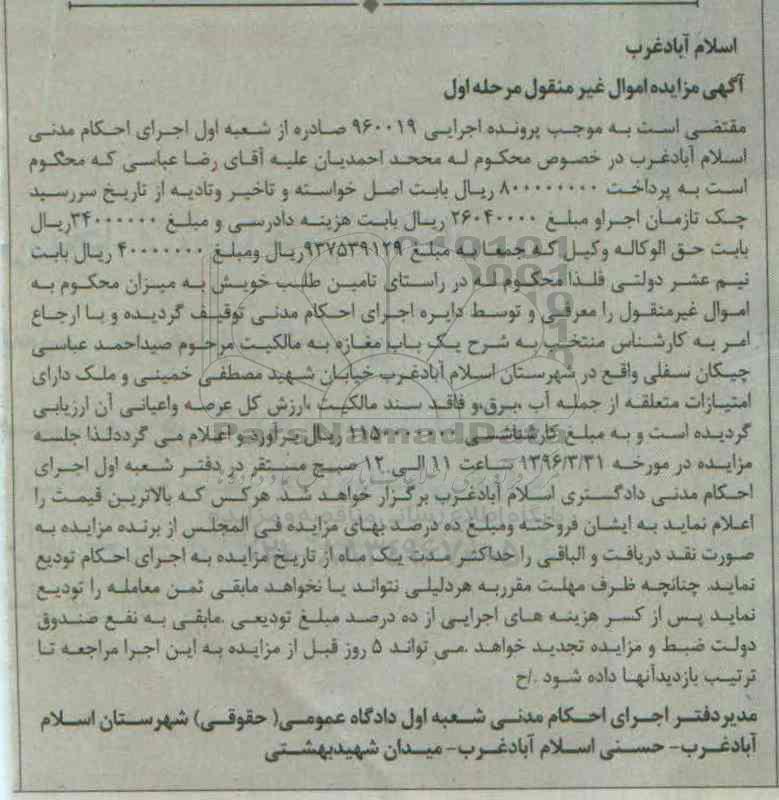 اسلام آبادغرب
آگهی مزایده اموال غیر منقول مرحله اول
مقتضی است به موجب پرونده اجرایی ۹۶۰۰۱۹ صادره از شعبه اول اجرای احکام مدنی
اسلام آبادغرب در خصوص محکوم له محمد احمدیان علیه آقای رضا عباسی که محکوم
است به پرداخت ۸۰۰۰۰۰۰۰۰ ریال بابت اصل خواسته و تاخیر وتادیه از تاریخ سررسید
چک تازمان اجراو مبلغ ۲۶۰۴۰۰۰۰ ریال بابت هزینه دادرسی و مبلغ ۳۴۰۰۰۰۰۰ریال
بابت حق الوکاله وکیل که جمعا به مبلغ ۹۳۷۵۳۹۱۲۹ریال ومبلغ ۴۰۰۰۰۰۰۰ ریال بابت
نیم عشر دولتی فلذا محکوم له در راستای تامین طلب خویش به میزان محکوم به
اموال غیرمنقول را معرفی و توسط دایره اجرای احکام مدنی توقیف گردیده و با ارجاع
امر به کارشناس منتخب به شرح یک باب مغازه به مالکیت مرحوم صیداحمد عباسی
چیکان سفلی واقع در شهرستان اسلام آبادغرب خیابان شهید مصطفی خمینی و ملک دارای
امتیازات متعلقه از جمله آب ،برق،و فاقد سند مالکیت ،ارزش کل عرصه واعیانی آن ارزیابی
گردیده است و به مبلغ کارشناسی ریال برآورد و اعلام می گرددلذا جلسه
مزایده در مورخه ۱۳۹۶/۳/۳۱ ساعت ۱۱ الی ۱۲ صبح مستقر در دفتر شعبه اول اجرای
احکام مدنی دادگستری اسلام آبادغرب برگزار خواهد شد. هرکس که بالاترین قیمت را
اعلام نماید به ایشان فروخته ومبلغ ده درصد بهای مزایده فی المجلس از برنده مزایده به
صورت نقد دریافت و الباقی را حداکثر مدت یک ماه از تاریخ مزایده به اجرای احکام تودیع
نماید. چنانچه ظرف مهلت مقرربه هردلیلی نتواند یا نخواهد مابقی ثمن معامله را تودیع
نماید پس از کسر هزینه های اجرایی از ده درصد مبلغ تودیعی .مابقی به نفع صندوق
دولت ضبط و مزایده تجدید خواهد .می تواند ۵ روز قبل از مزایده به این اجرا مراجعه تا
ترتیب بازدیدآنها داده شود ./ح
مدیردفتر اجرای احکام مدنی شعبه اول دادگاه عمومی( حقوقی) شهرستان اسلام
آبادغرب- حسنی اسلام آبادغرب- میدان شهیدبهشتی
ParsNamadData